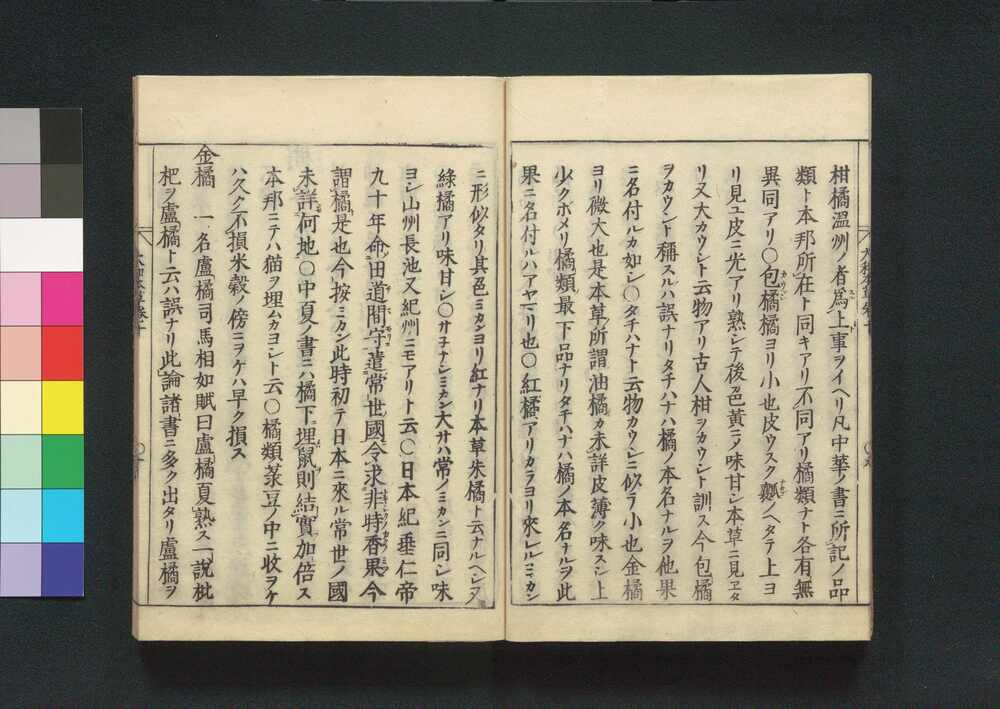 柑橘溫州ノ者爲上事ヲイヘリ凡中華ノ書ニ所記ノ品
類ト本邦所在ト同キアリ不同アリ橘類ナト各有無
異同アリ○包橘橘ヨリ小也皮ウスク瓤ノヘタテ上ヨ
リ見ユ皮ニ光アリ熟シテ後色黃ニメ味甘シ本草ニ見ヱタ
リ又大カウシト云物アリ古人柑ヲカウシト訓ス今包橘
ヲカウシト稱スルハ誤ナリタチハナハ橘ノ本名ナルヲ他果
ニ名付ルカ如シ○タチハナト云物カウシニ似ラ小也金橘
ヨリ微大也是本草所謂油橘カ未詳皮薄ク味スシ上
少クボメリ橘類最下品ナリタチハナハ橘ノ本名ナルヲ此
果ニ名付ルハアヤマリ也○紅橘アリカラヨリ來レルミカン
ニ形似タリ其色ミカンヨリ紅ナリ本草朱橘ト云ナルヘシ又
綠橘アリ味甘シ○サ子ナシミカン大サハ常ノミカンニ同シ味
ヨシ山州長池又紀州ニモアリト云○日本紀垂仁帝
九十年命田道間守遣常世國令求非時香果今
謂橘是也今按ミカン此時初テ日本ニ來ル常世ノ國
未詳何地○中夏ノ書ニハ橘下埋鼠則結實加倍ス
本邦ニテハ猫ヲ埋ムカヨシト云○橘類菉豆ノ中ニ收ヲケ
ハ久ク不損米穀ノ傍ニヲケハ早ク損ス
金橘 一名盧橘司馬相如賦曰盧橘夏熟ス一說枇
杷ヲ盧橘ト云ハ誤ナリ此論諸書ニ多ク出タリ盧橘ヲ